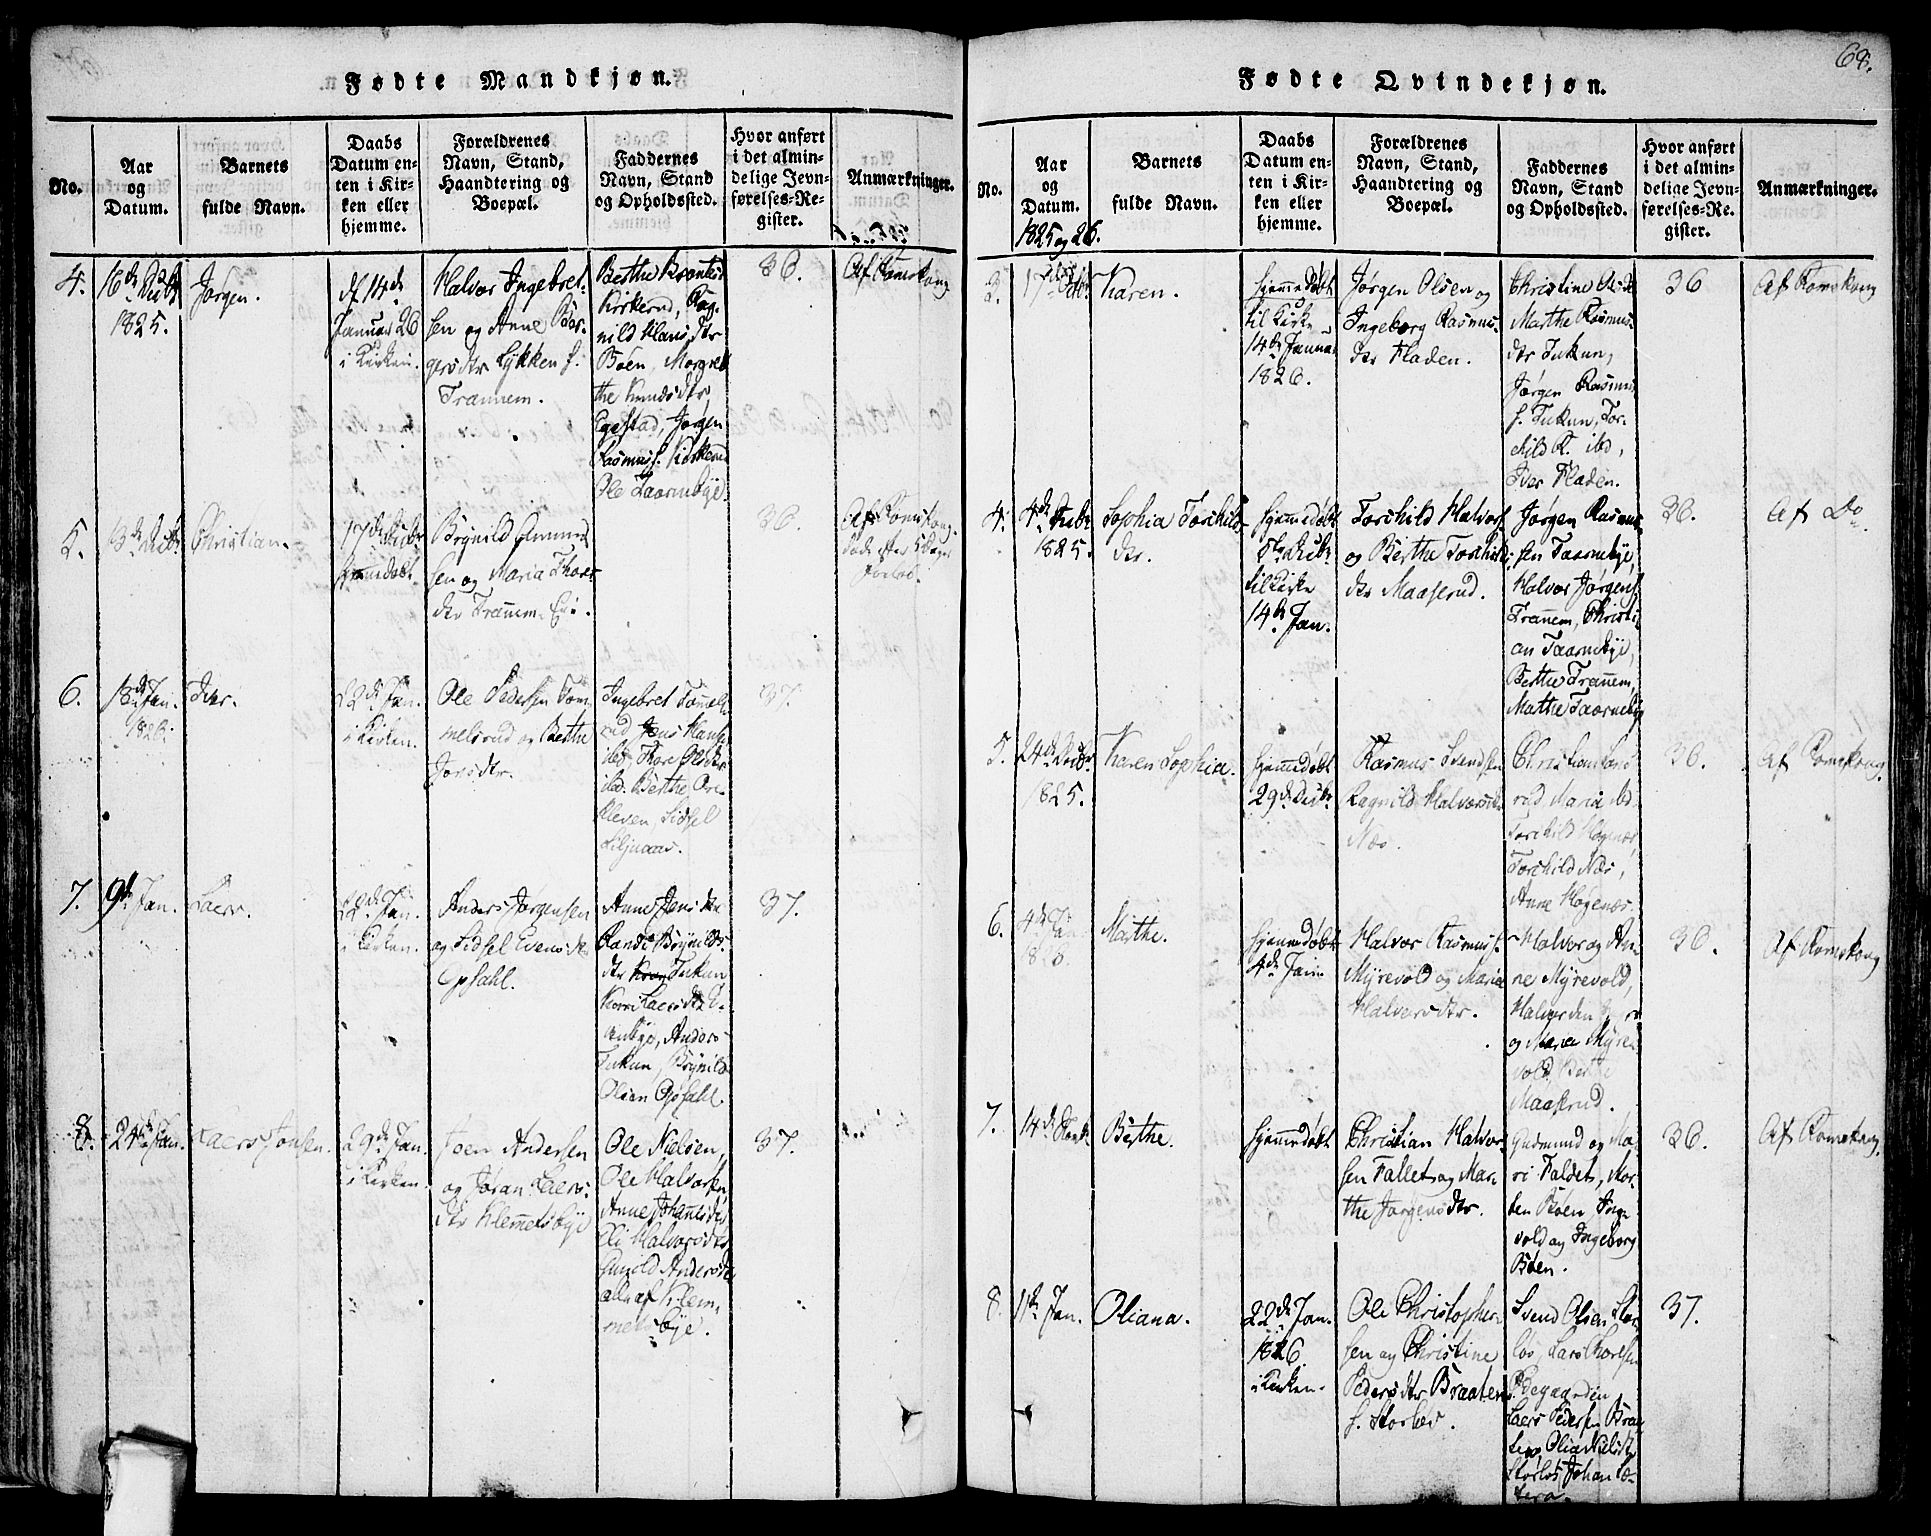 68.
Fødte Mandkjøn.
No.
Aar
og
Datum.
Barnets
fulde Navn.
Daabs
Datum en-
ten i Kir-
ken eller
hjemme.
Forældrenes
Navn, Stand,
Haandtering og
Boepæl.
Faddernes
Navn, Stand
og Opholdssted.
Hvor anført
i det almin-
delige Jevn-
førelses-Re-
gister.
Anmærkninger.
4.
16de Decbr
1825.
Jørgen.
14de
Januar 26
i Kirken.
Halvor Ingebret-
sen og Anne Bør-
gersdtr Lykken
Trannem.
Berthe
Kirkerud, Rag-
nild Hansdtr
Böen, Margret
the Knudsdtr,
Egestad, Jørgen
Rasmuss. Kirkerud
Ole Taarnebye
36.
Af Romskoug
5.
3de Decbr
Christian.
17de Decbr
hjemmedøbt.
Brynild
sen og Maria Thores
dtr Trannem Eie.
36.
Af Romskoug.
Døde efter 5 Dages
Forløb.
6.
13de Jan.
1826.
Iver.
22de Jan.
i Kirken.
Ole Pedersen Tom-
melsrud og Berthe
Jonsdtr.
Ingebret Tommels-
rud Jens Hans
ibd, Thore Olsdtr
ibd. Berthe
Kleven, Sidsel
37.
7.
9de Jan.
Laers.
22de Jan.
i Kirken.
Anders Jørgensen
og Sidsel Evensdtr
Opsahl.
Anne Jensdtr
Randi Brynilds-
dtr Tukun
Karen Laersdtr
Anders
Tukun, Brynild
Olsen Opsahl.
37.
8.
24de Jan.
Laers Jonsen.
29de Jan.
i Kirken.
Joen Andersen
og Jøran Laers-
dtr Klemmetsbye
Ole Nielsen,
Ole Halvorsen,
Anne Johannesdtr,
Eli Halvorsdtr
Gunild Andersdtr
alle af Klem-
metsbye.
37.
Fødte Qvindekjøn.
No.
Aar
og
Datum.
1825 og 26.
Barnets
fulde Navn.
Daabs
Datum en-
ten i Kir-
ken eller
hjemme.
Forældrenes
Navn, Stand,
Haandtering og
Boepæl.
Faddernes
Navn, Stand
og Opholdssted.
Hvor anført
i det almin-
delige Jevn-
førelses-Re-
gister.
Anmærkninger.
3.
17de
Karen.
hjemmedøbt
til Kirke
14de Januar
1826.
Jørgen Olsen og
Ingeborg Rasmus-
dtr Fladen.
Christine Olsdtr
Marthe Rasmus-
dtr Tukun,
Jørgen Rasmus
s. Tukun, Tor-
child R. ibd,
Iver Fladen.
36
Af Romskoug
4.
4de Decbr
1825.
Sophia Torchilds-
dtr.
hjemmedøbt
Decbr
til Kirke
14de Jan.
Torchild Halvors
og Berthe Torchilds-
dtr Maaserud.
Jørgen Rasmus
sen Taarnebye,
Halvor Jørgens.
Trannem, Christi-
an Taarnebye,
Berthe Trannem,
Marthe Taarnebye
36.
Af Do
5.
24de Decbr
1825.
Karen Sophia.
hjemmedøbt
29de Decbr
Rasmus Svendsen
Ragnild Halvorsdtr
Næs.
Christian
Maria ibd
Torchild Høgenæs,
Torchild Næs,
Anne Høgenæs
36.
Af Romskoug.
6.
4de Jan
1826
Marthe.
hjemmedøbt
4de Jan
Halvor Rasmuss.
Myrevold og Maria
Halvorsdtr.
Halvor og An-
ne Myrevold,
Halvor den Yngre
og Maria Myre-
vold, Berthe
Maaserud.
36.
Af Romskoug
7.
14de
Berthe.
hjemmedøbt
Christian Halvor-
sen Fallet og Mar-
the Jørgensdtr.
Gudmund og Ma-
ri Faldet, Mor-
ten Böen Inge-
vold og Ingeborg
Böen.
36.
Af Romskoug.
8.
11te Jan.
Oliana.
22de Jan.
1826
i Kirken.
Ole Christopher-
sen og Christine
Pedersdtr Braaten
s. Storløs.
Svend Olsen Stor-
løs, Lars Thoresen
Ødegaarden
Laers Pedersen Braa-
ten, Olia Nielsdtr
Storløs, Johan Sæ-
tera.
37.